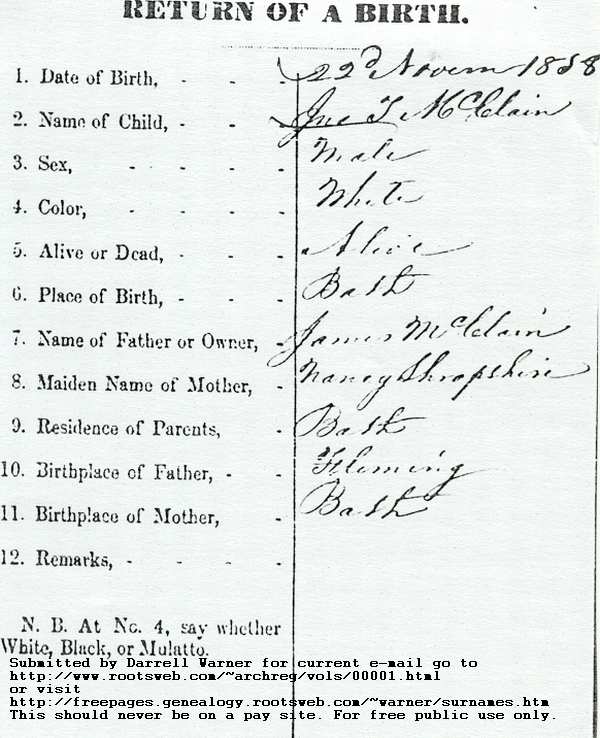 RETURN OF A BIRTH.
1. Date of Birth, - - - 22d Novem 1858
2. Name of Child, - - - Jno T McClain
3. Sex, - - - - Male
4. Color, - - - - White
5. Alive or Dead, - - - Alive
6. Place of Birth, - - - Bath
7. Name of Father or Owner, - James McClain
8. Maiden Name of Mother, - Nancy Shropshire
9. Residence of Parents, - Bath
10. Birthplace of Father, - - Fleming
11. Birthplace of Mother, - Bath
12. Remarks, - - - -
N. B. At No. 4, say whether
White, Black, or Mulatto.
Submitted by Darrell Warner for current e-mail go to
http://www.rootsweb.com/~archreg/vols/00001.html
or visit
http://freepages.genealogy.rootsweb.com/~warner/surnames.htm
This should never be on a pay site. For free public use only.